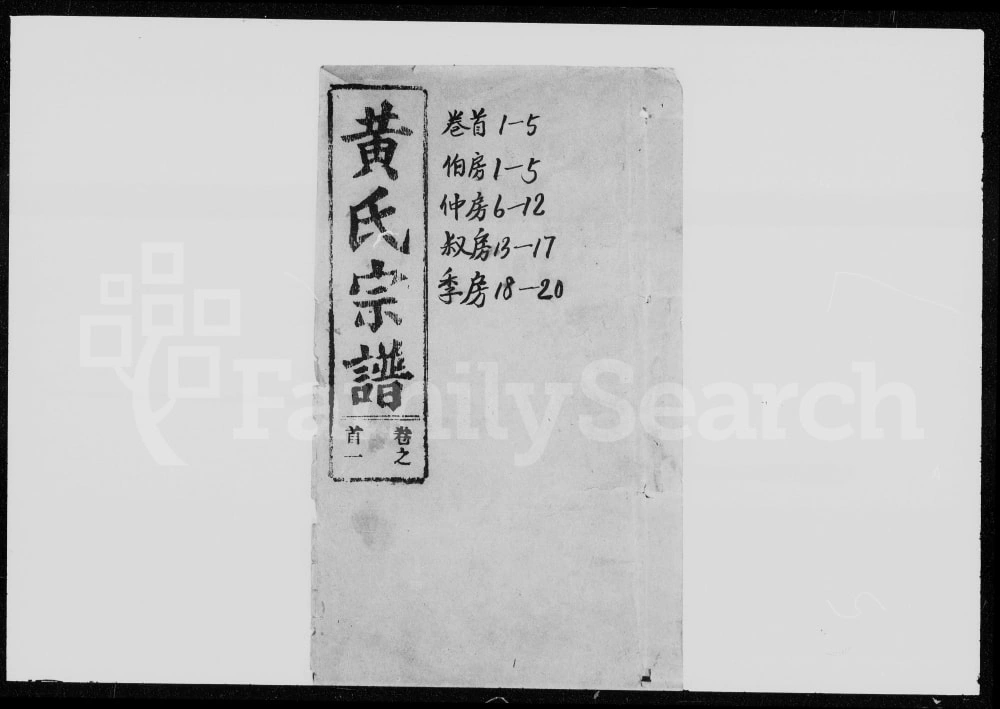 黃氏宗譜
卷之
首一
卷首 1-5
伯房 1-5
仲房 6-12
叔房 13-17
季房 18-20
FamilySearch